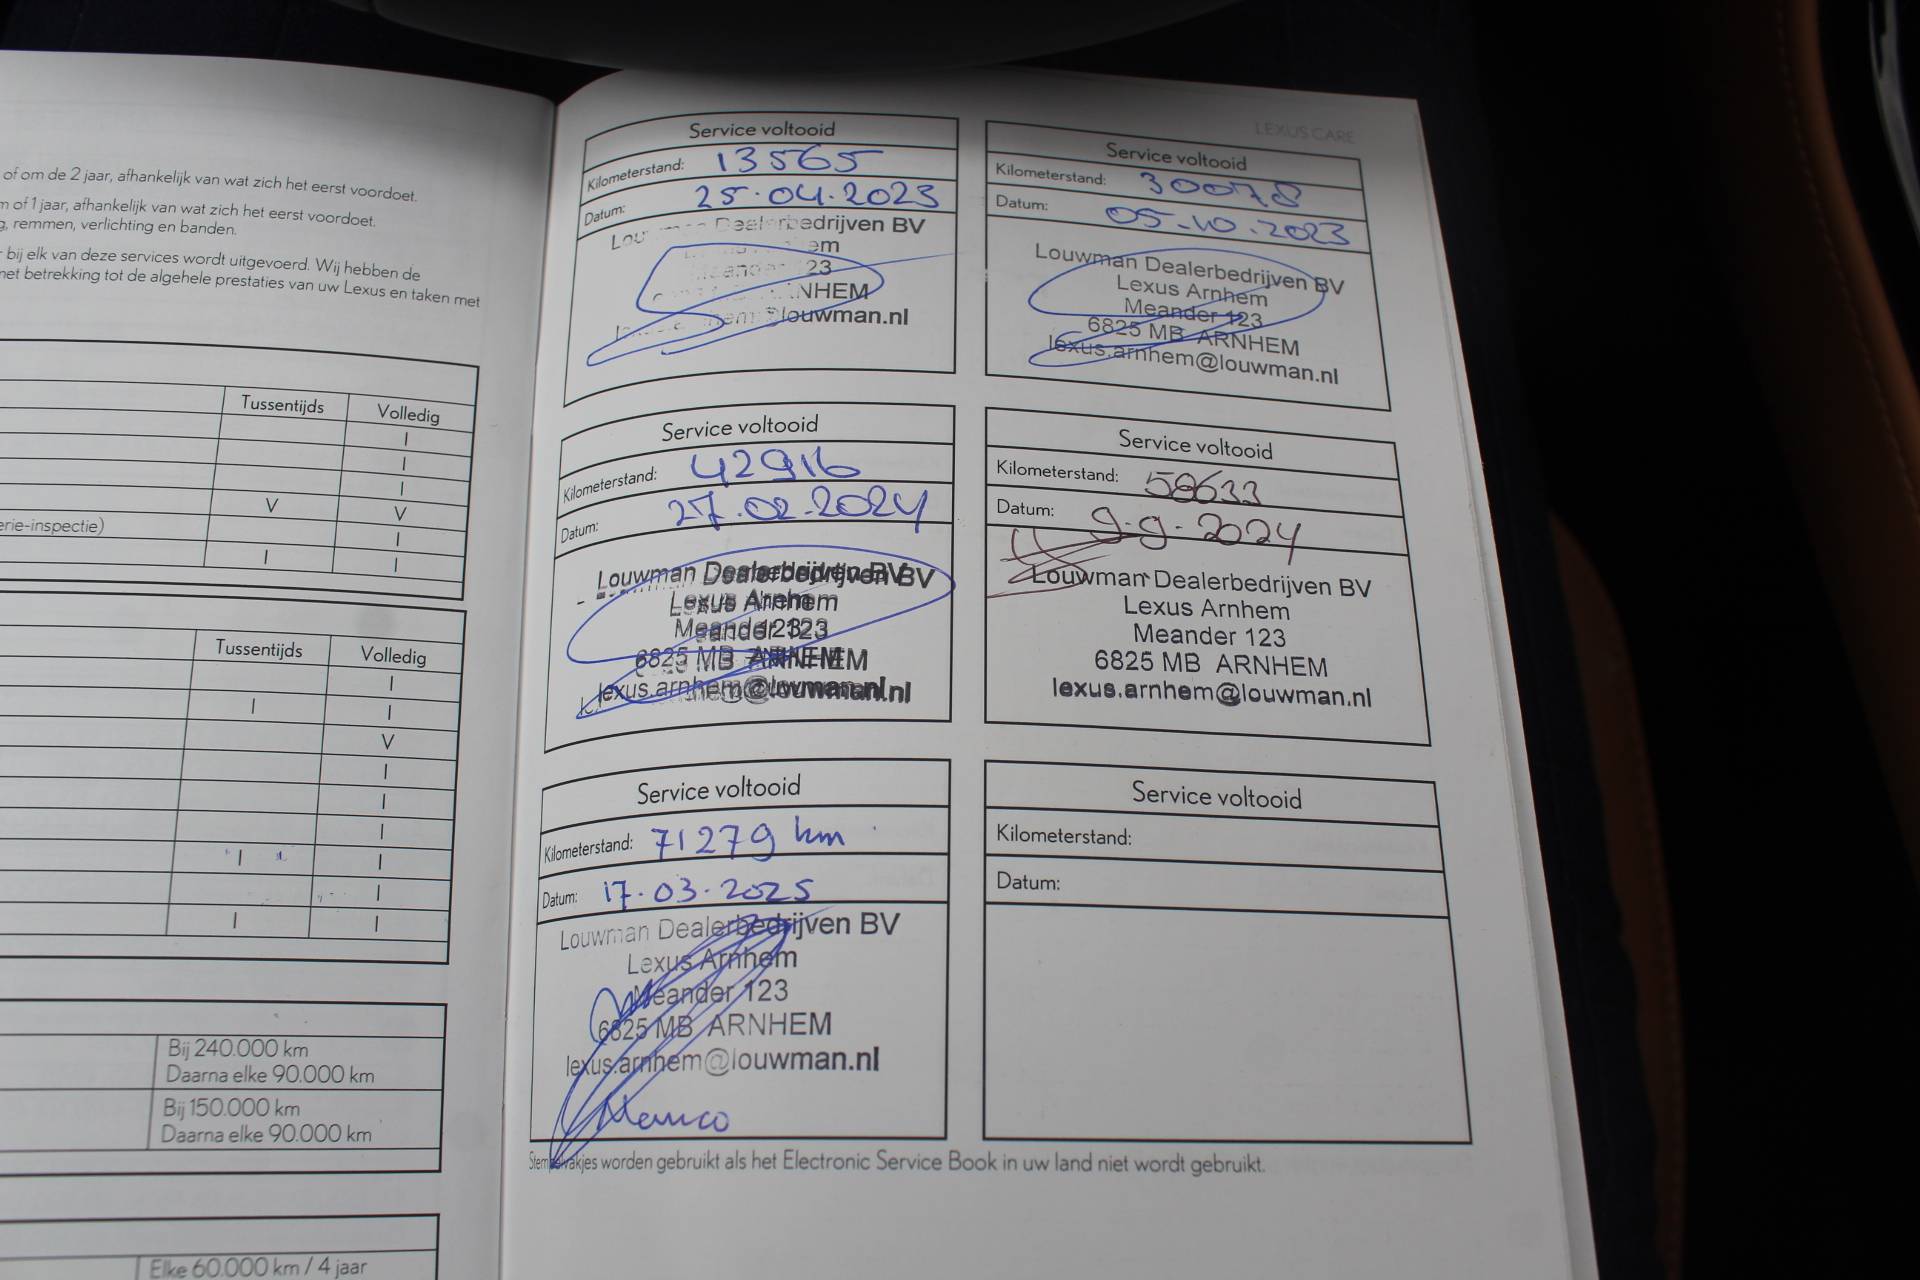 of om de 2 jaar, afhankelijk van wat zich het eerst voordoet.
of 1 jaar, afhankelijk van wat zich het eerst voordoet.
remmen, verlichting en banden.
bij elk van deze services wordt uitgevoerd. Wij hebben de
met betrekking tot de algehele prestaties van uw Lexus en taken met
Tussentijds Volledig
I
I
I
V V
erie-inspectie) I
I I
Tussentijds Volledig
I
I I
V
I
I
I
I I
I
I I
Bij 240.000 km
Daarna elke 90.000 km
Bij 150.000 km
Daarna elke 90.000 km
Elke 60.000 km / 4 jaar
LEXUS CARE
Service voltooid
Kilometerstand: 13565
Datum: 25.04.2023
Louwman Dealerbedrijven BV
Meander 123
ARNHEM
@louwman.nl
Service voltooid
Kilometerstand: 30078
Datum: 05.10.2023
Louwman Dealerbedrijven BV
Lexus Arnhem
Meander 123
6825 MB ARNHEM
lexus.arnhem@louwman.nl
Service voltooid
Kilometerstand: 42916
Datum: 27.02.2024
Louwman Dealerbedrijven BV
Lexus Arnhem
Meander 123
6825 MB ARNHEM
lexus.arnhem@louwman.nl
Service voltooid
Kilometerstand: 58633
Datum: 9-9-2024
Louwman Dealerbedrijven BV
Lexus Arnhem
Meander 123
6825 MB ARNHEM
lexus.arnhem@louwman.nl
Service voltooid
Kilometerstand: 71279 km
Datum: 17.03.2025
Louwman Dealerbedrijven BV
Lexus Arnhem
Meander 123
6825 MB ARNHEM
lexus.arnhem@louwman.nl
Service voltooid
Kilometerstand:
Datum:
Stempelvakjes worden gebruikt als het Electronic Service Book in uw land niet wordt gebruikt.